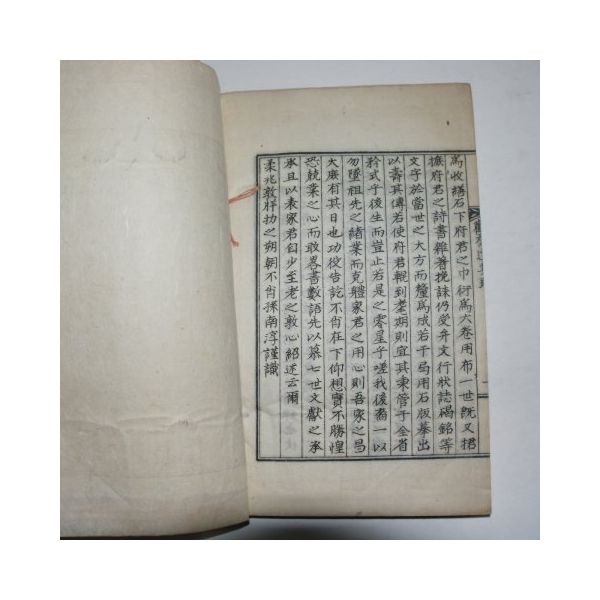 爲收繕石下府君之巾衍爲六卷用布一世旣又捃
摭府君之詩書雜著挽誄仍受弁文行狀誌碣銘等
文字於當世之大方而釐爲成若干局用石版摹出
以壽其傳若使府君輥到耄期則宜其東管于全省
矜式乎後生而豈止若是之零星乎嗟我後裔一以
勿墜祖先之緖業而克體家君之用心則吾家之昌
大庶有其日也功役告訖不肖在下仰想實不勝惶
恐兢業之心而敢畧書數語先以慕七世文獻之承
承且以表家君自少至老之敦心紹述云爾
柔兆敦牂 之朔朝不肖孫南淳謹識